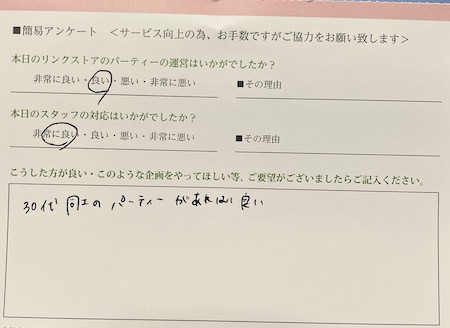 ■簡易アンケート <サービス向上の為、お手数ですがご協力をお願い致します>
本日のリンクストアのパーティーの運営はいかがでしたか?
非常に良い・良い・悪い・非常に悪い ■その理由
本日のスタッフの対応はいかがでしたか?
非常に良い・良い・悪い・非常に悪い ■その理由
こうした方が良い・このような企画をやってほしい等、ご要望がございましたらご記入ください。
30代 同士の パーティーが あれば 良い